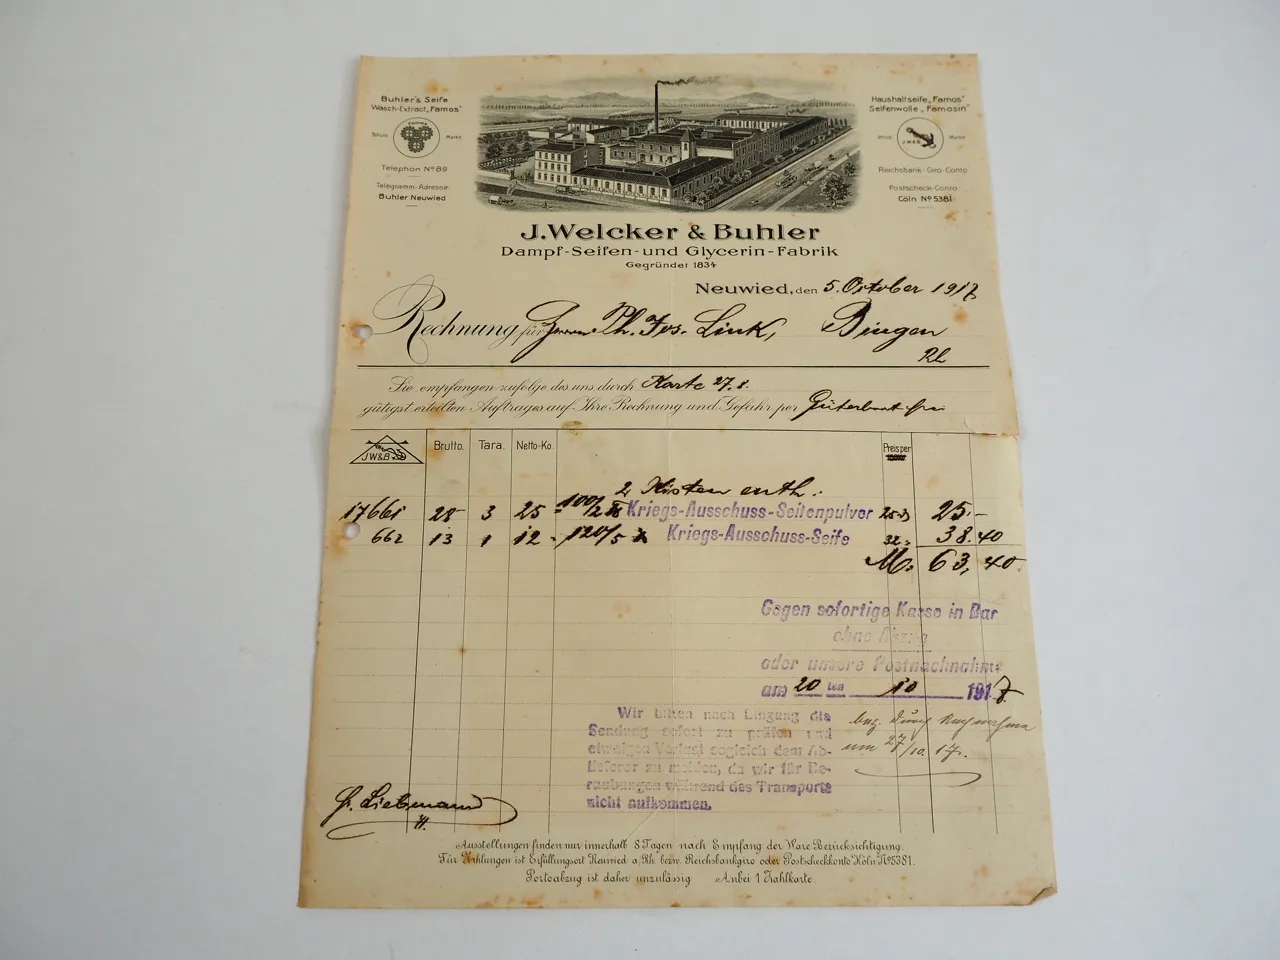 Buhler's Seife
Wasch-Extract „Famos"
Famos
Schutz Marke
Telephon Nº 89
Telegramm-Adresse:
Buhler Neuwied
Haushaltseife „Famos"
Seifenwolle „Famosin"
Schutz Marke
J.W&B.
Reichsbank-Giro-Conto
Postscheck-Conto:
Cöln Nº 5381
J. Welcker & Buhler
Dampf-Seifen- und Glycerin-Fabrik
Gegründet 1834
Neuwied, den 5. October 1917
Rechnung für Herrn Ph. Jos. Link, Bingen
Rh
Sie empfangen zufolge des uns durch Karte 27.8.
gütigst erteilten Auftrages auf Ihre Rechnung und Gefahr per Güterboot
JW&B
Brutto. Tara. Netto-Ko. Preis per
2 Kisten enth.
17661 28 3 25 100/2 ℔ Kriegs-Ausschuss-Seifenpulver 25.- 25.-
662 13 1 12 120/5 Kriegs-Ausschuss-Seife 32.- 38.40
M. 63,40
Gegen sofortige Kasse in Bar
ohne Abzug
oder unsere Postnachnahme
am 20 ten 10 1917
Wir bitten nach Eingang die
Sendung sofort zu prüfen und
etwaigen Verlust sogleich dem Ab-
lieferer zu melden, da wir für Be-
raubungen während des Transports
nicht aufkommen.
bez. durch Nachnahme
am 27/10. 17.
Liebmann
Ausstellungen finden nur innerhalb 8 Tagen nach Empfang der Ware Berücksichtigung.
Für Zahlungen ist Erfüllungsort Neuwied a/Rh. bezw. Reichsbankgiro oder Postscheckkonto Köln Nº 5381.
Portoabzug ist daher unzulässig Anbei 1 Zahlkarte.